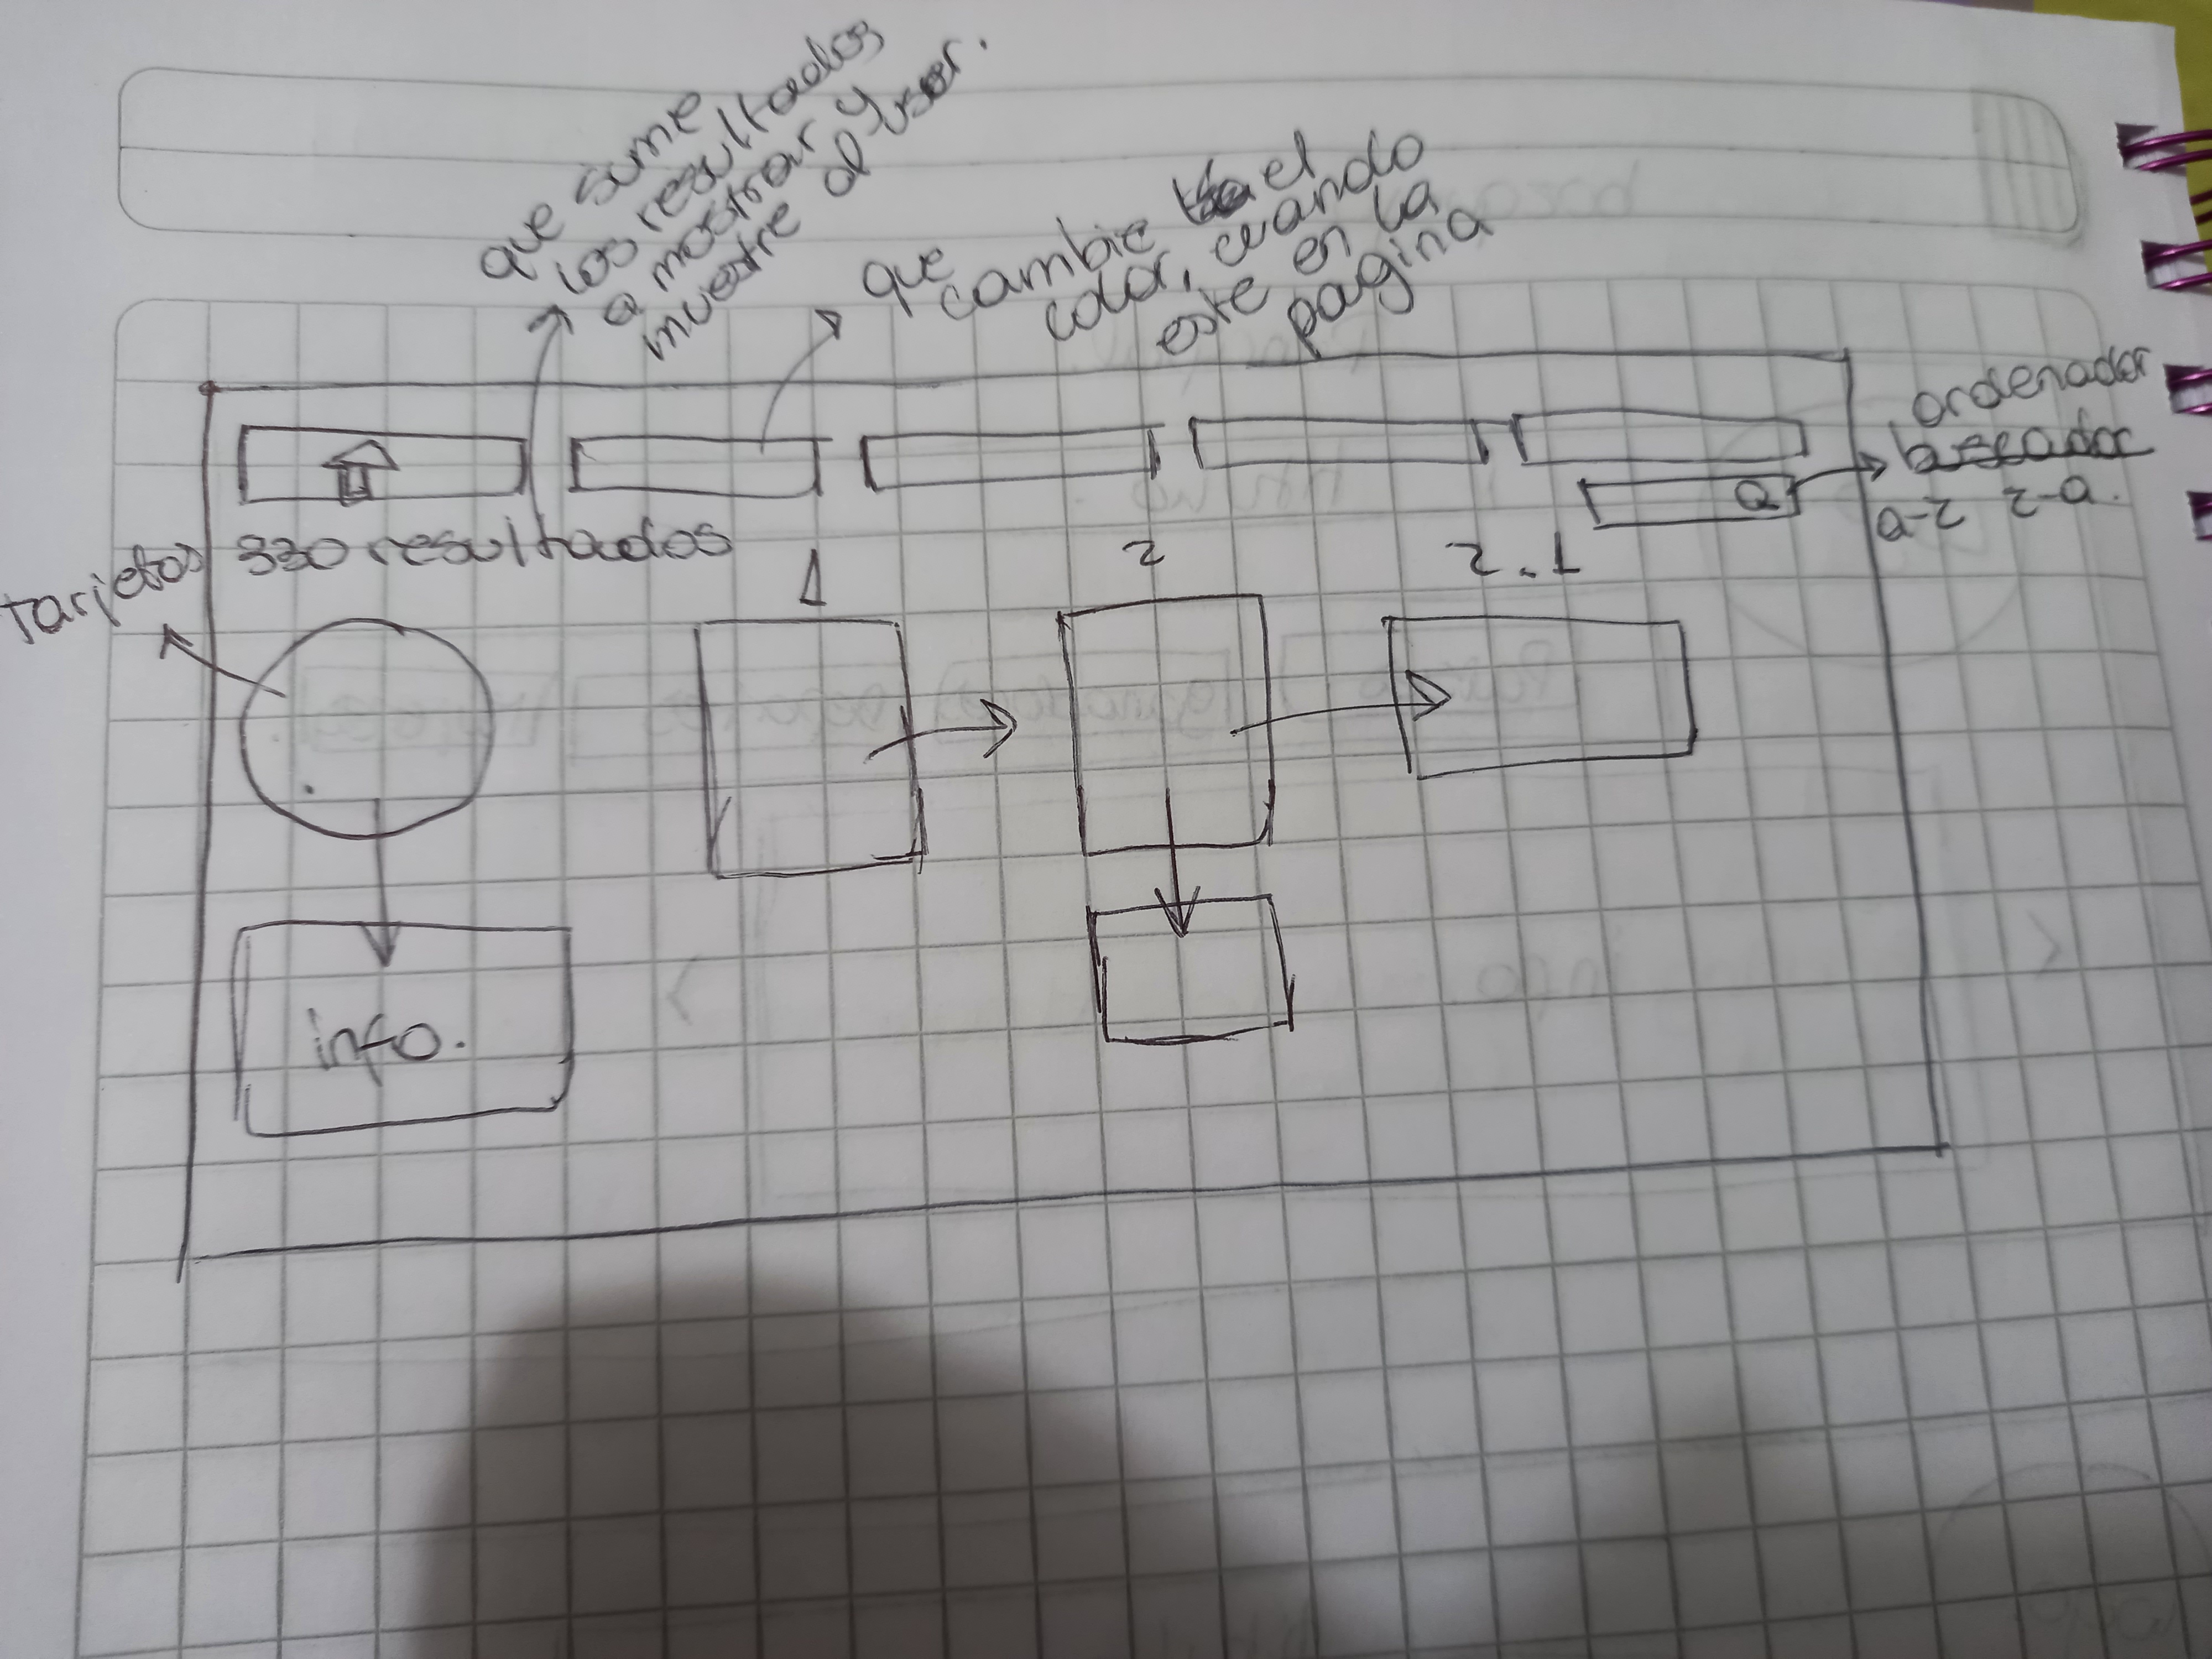 que sume
los resultados
a mostrar y
muestre al user.
que cambie el
color, cuando
este en la
pagina
ordenador
buscador
a-z z-a.
330 resultados
tarjetas
1
2
2.1
info.